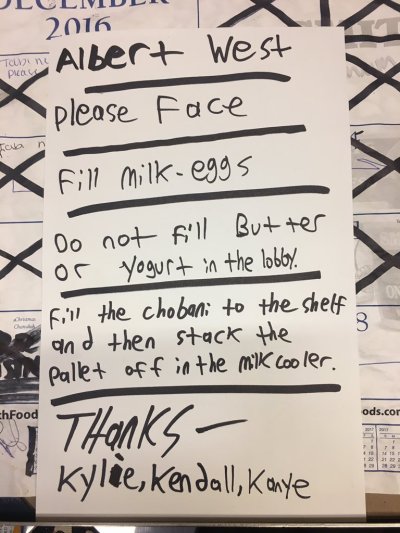 DECEMBER
2016
Albert West
please Face
Fill milk-eggs
Do not fill Butter
or yogurt in the lobby.
Fill the chobani to the shelf
and then stack the
pallet off in the milk cooler.
THANKS —
Kylie, Kendall, Kanye
8
thFood
ods.com